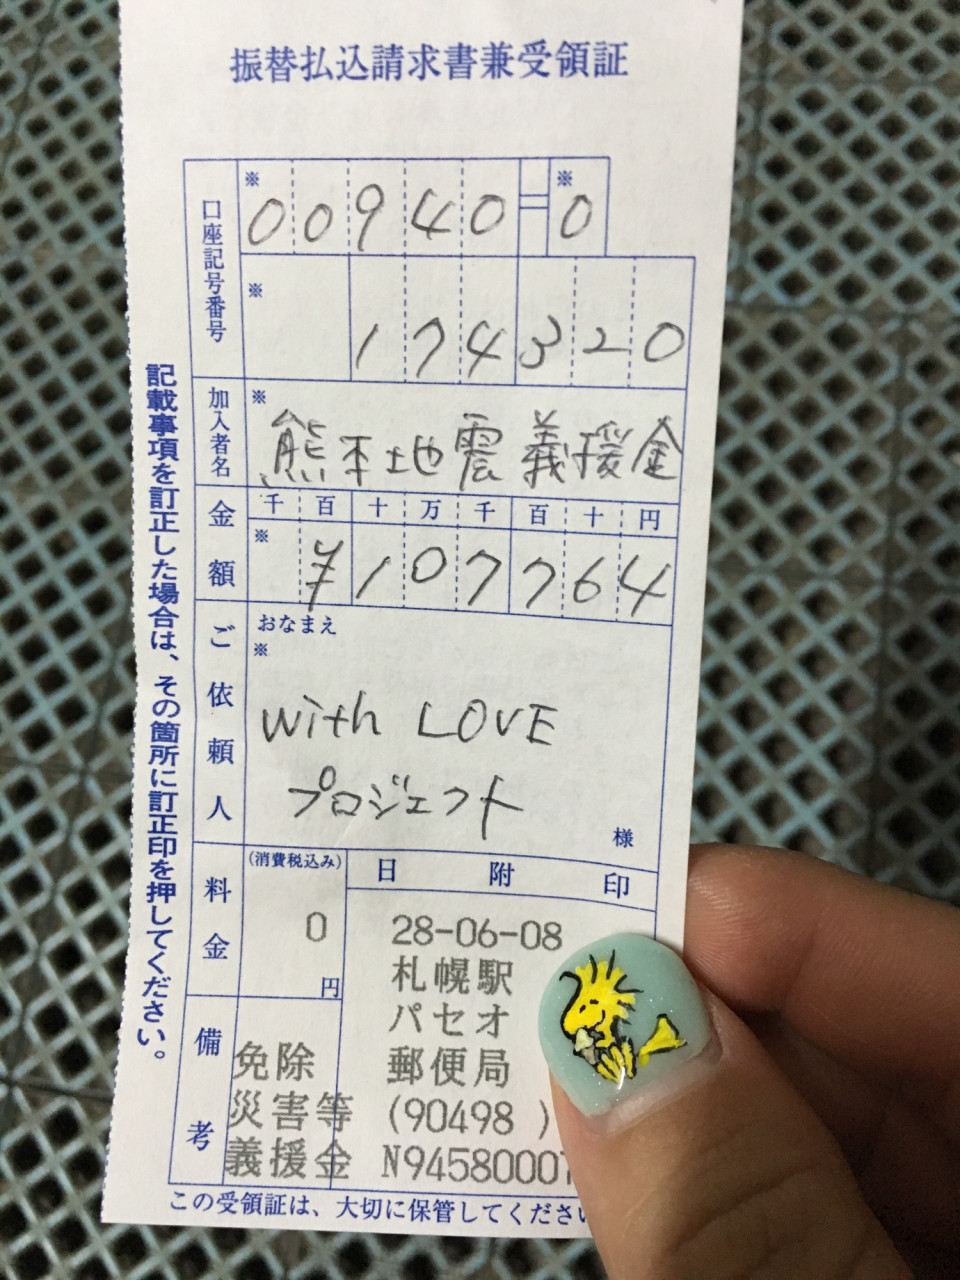 振替払込請求書兼受領証
口座記号番号
※ ※
00940=0
※
174320
加入者名
※
熊本地震義援金
金額
千百十万千百十円
※
¥107764
ご依頼人
おなまえ
※
with LOVE
プロジェクト
様
料金
(消費税込み)
0
円
日附印
28-06-08
札幌駅
パセオ
郵便局
(90498 )
N94580007
備考
免除
災害等
義援金
記載事項を訂正した場合は、その箇所に訂正印を押してください。
この受領証は、大切に保管してください